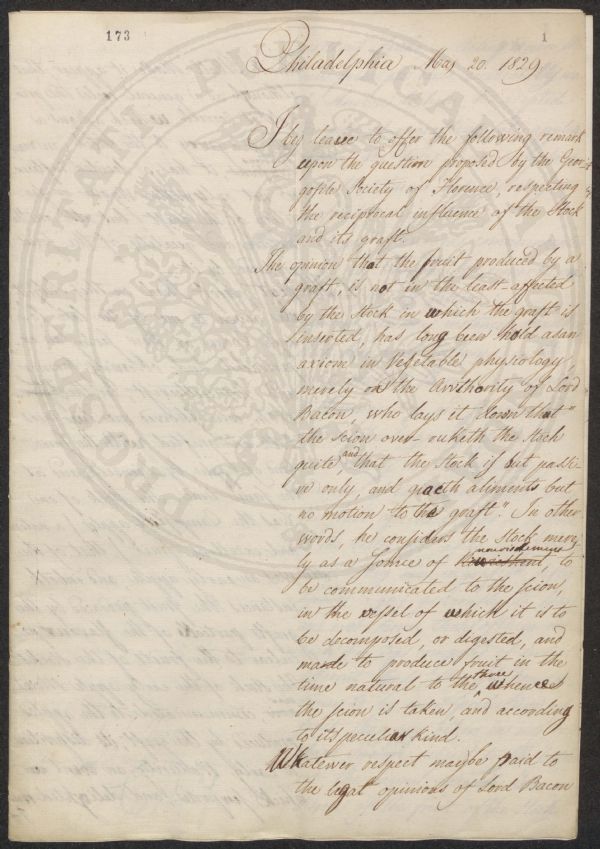 173
1
Philadelphia May 20. 1829
I beg leave to offer the following remark
upon the question proposed by the Geor
gofile Society of Florence, respecting
the reciprocal influence of the Stock
and its graft.
The opinion that the fruit produced by a
graft, is not in the least affected
by the stock in which the graft is
inserted, has long been hold as an
axiom in Vegetable physiology
merely on the Avvthority of Lord
Bacon, who lays it down that "
the scion over-ruleth the stock
quite and that the stock is but passi-
ve only, and giveth aliments but
no motion to the graft". In other
words, he considers the stock mere
ly as a source of nourishment, to
be communicated to the scion,
in the vessel of which it is to
be decomposed, or digested, and
made to produce fruit in the
time natural to the three whence
the scion is taken, and according
to its peculiar kind.
Whatewer respect may be paid to
the legal opinions of Lord Bacon
PROSPERITATI PUBLICAE